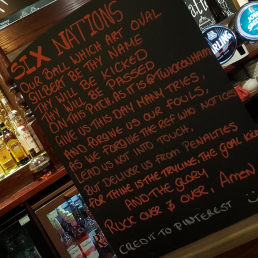 SIX NATIONS
OUR BALL WHICH ART OVAL
GILBERT BE THY NAME
THY WILL BE KICKED
THY WILL BE PASSED
ON THIS PITCH, AS IT IS @TWICKENHAM
GIVE US THIS DAY MANY TRIES,
AND FORGIVE US OUR FOULS,
AS WE FORGIVE THE REF WHO NOTICES
LEAD US NOT INTO TOUCH,
BUT DELIVER US FROM PENALTIES
FOR THINE IS THE TRYLINE, THE GOAL KICK
AND THE GLORY
RUCK OVER & OVER, AMEN
CREDIT TO PINTEREST